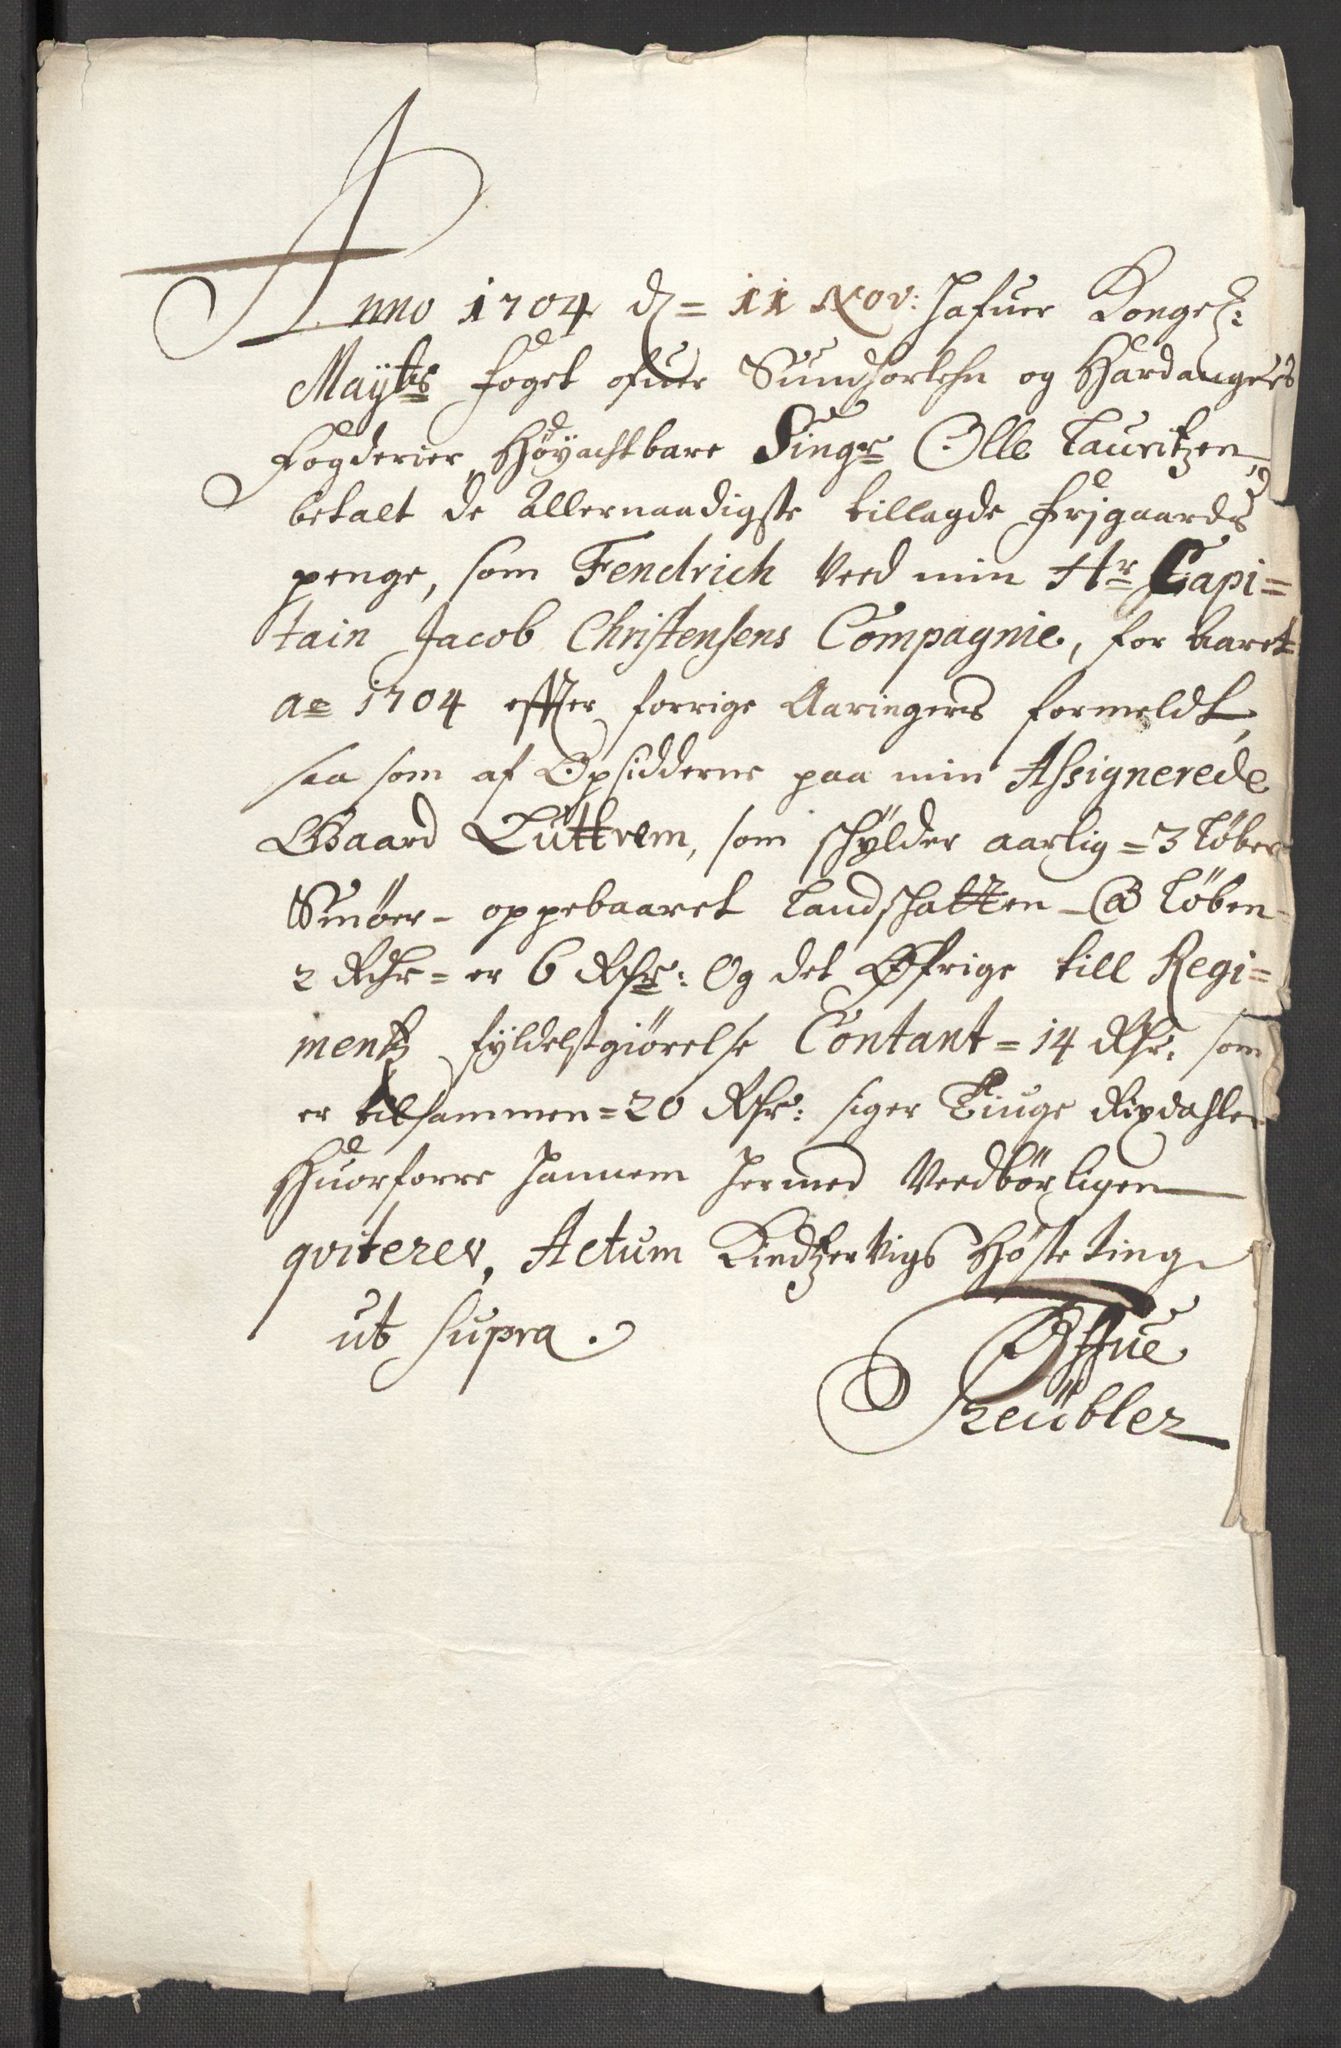 Anno 1704 d = 11 Nov: hafuer Kongel:
Mayts foget ofuer Sundhorlehn og Hardangers
Fogderier, Høyachtbare Singr Olle Lauritzen,
betalt de Allernaadigste tillagde frjgaards
penge, som Fendrich Veed min Hr Capi=
tain Jacob Christensens Compagnie, for Aaret
ao 1704 effter forrige Aaringers formeldt,
saa som af Opsidderne paa min Assignerede
Gaard Luttrem, som schÿlder aarlig = 3 Løber
Smöer - oppebaaret Landschatten - @ Löben -
2 Rdr = er 6 Rdr: Og det Øfrige till Regi=
mentz fyldestgiörelse Contant = 14 Rdr. som
er tilsammen = 20 Rdr: siger Tiuge Rixdahler
Huorforre hannem hermed Veedbörligen
qviterer, Actum Kindtzervigs Høste ting
ut supra.
Offue
Treübler